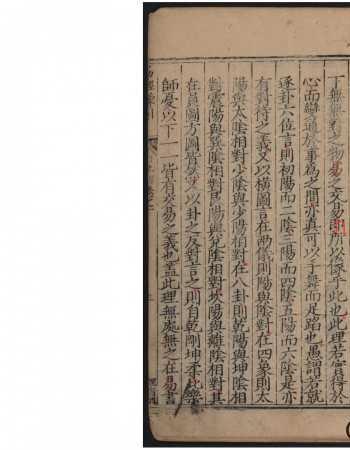 下無無對之物易之交易即所以象乎此也此理若會得於
心而變通於事為之間亦真可以手舞而足蹈也愚謂若就
逐卦六位言則初陽而二陰三陽而四陰五陽而六陰是亦
有對待之義又以橫圖言在兩儀則陽與陰對在四象則太
陽與太陰相對少陰與少陽相對在八卦則乾陽與坤陰相
對震陽與巽陰相對艮陽與兌陰相對坎陽與離陰相對其
在員圖方圖皆然又以卦之反對言之則自乾剛坤柔比樂
師憂以下一一皆有交易之義也蓋此理無處無之在易書